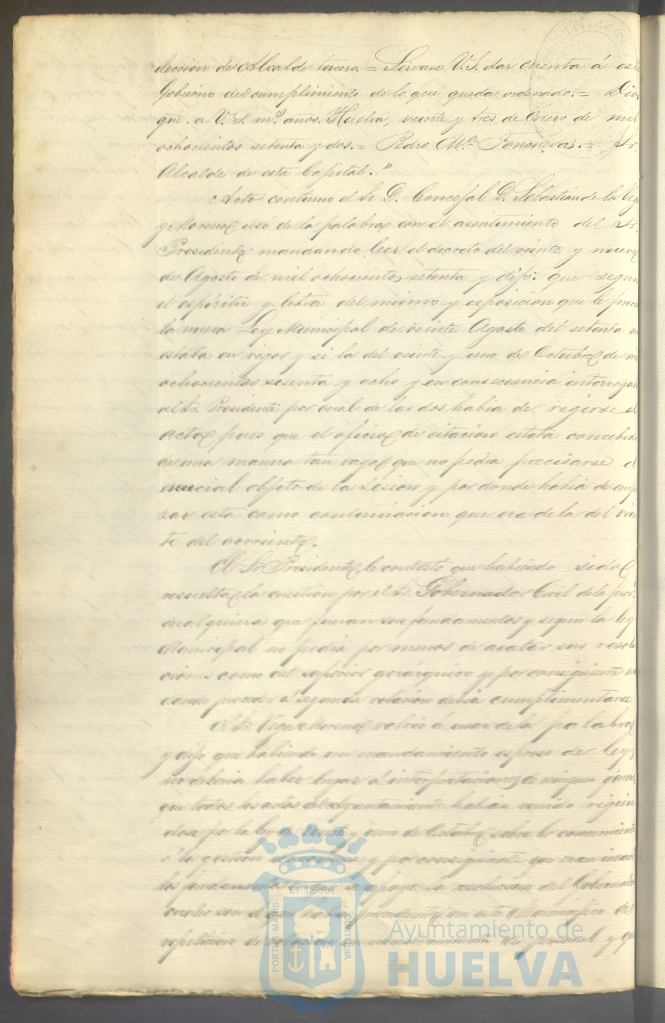 lección de Alcalde tercero.= Sírvase V.S. dar cuenta á este
Gobierno del cumplimiento de lo que queda ordenado.= Dios
gue. a V.S. ms. años. Huelva, veinte y tres de Enero de mil
ochocientos setenta y dos.= Pedro Ma. = Sr.
Alcalde de esta Capital."
Acto continuo el Sr. D. Concejal D. Sebastian de la Vega
y Moreno usó de la palabra con el asentimiento del Sr.
Presidente mandando leer el decreto del veinte y nueve
de Agosto de mil ochocientos setenta y dijo: que segun
el espiritu y letra del mismo y esposicion que le prece
la nueva Ley Municipal de veinte Agosto del setenta no
estaba en vigor y si la del veinte y uno de Octubre de mil
ochocientos sesenta y ocho y en consecuencia interrogaba
al Sr. Presidente por cual de las dos habia de regirse el
acto pues que el oficio de citacion estaba concebido
de una manera tan vaga que no podia precisarse el
esencial objeto de la sesion y por donde habia de empe
zar esta como continuacion que era de la del vein
te del corriente.
El Sr. Presidente le contestó que habiendo sido re
suelta la cuestion por el Sr. Gobernador Civil de la prov.
cualquiera que fueran sus fundamentos y segun la ley
Municipal no podia por menos de acatar sus resolu
ciones como del superior gerárquico y por consiguiente
proceder á segunda votacion debia cumplimentarse
El Sr. Vega y Moreno volvió á usar de la palabra
y dijo que habiendo un mandamiento espreso de ley
no deberia haber lugar á interpretaciones de ningun género
que todos los actos del Ayuntamiento habian venido rigien
dose por la ley de veinte y uno de Octubre sobre lo concerniente
á la gestion y por consiguiente que
los fundamentos que se apoya la resolucion del Gobernador
repeticion de votacion
PORTUS MARIS
ET TERRÆ
CUSTODIA
Ayuntamiento de
HUELVA